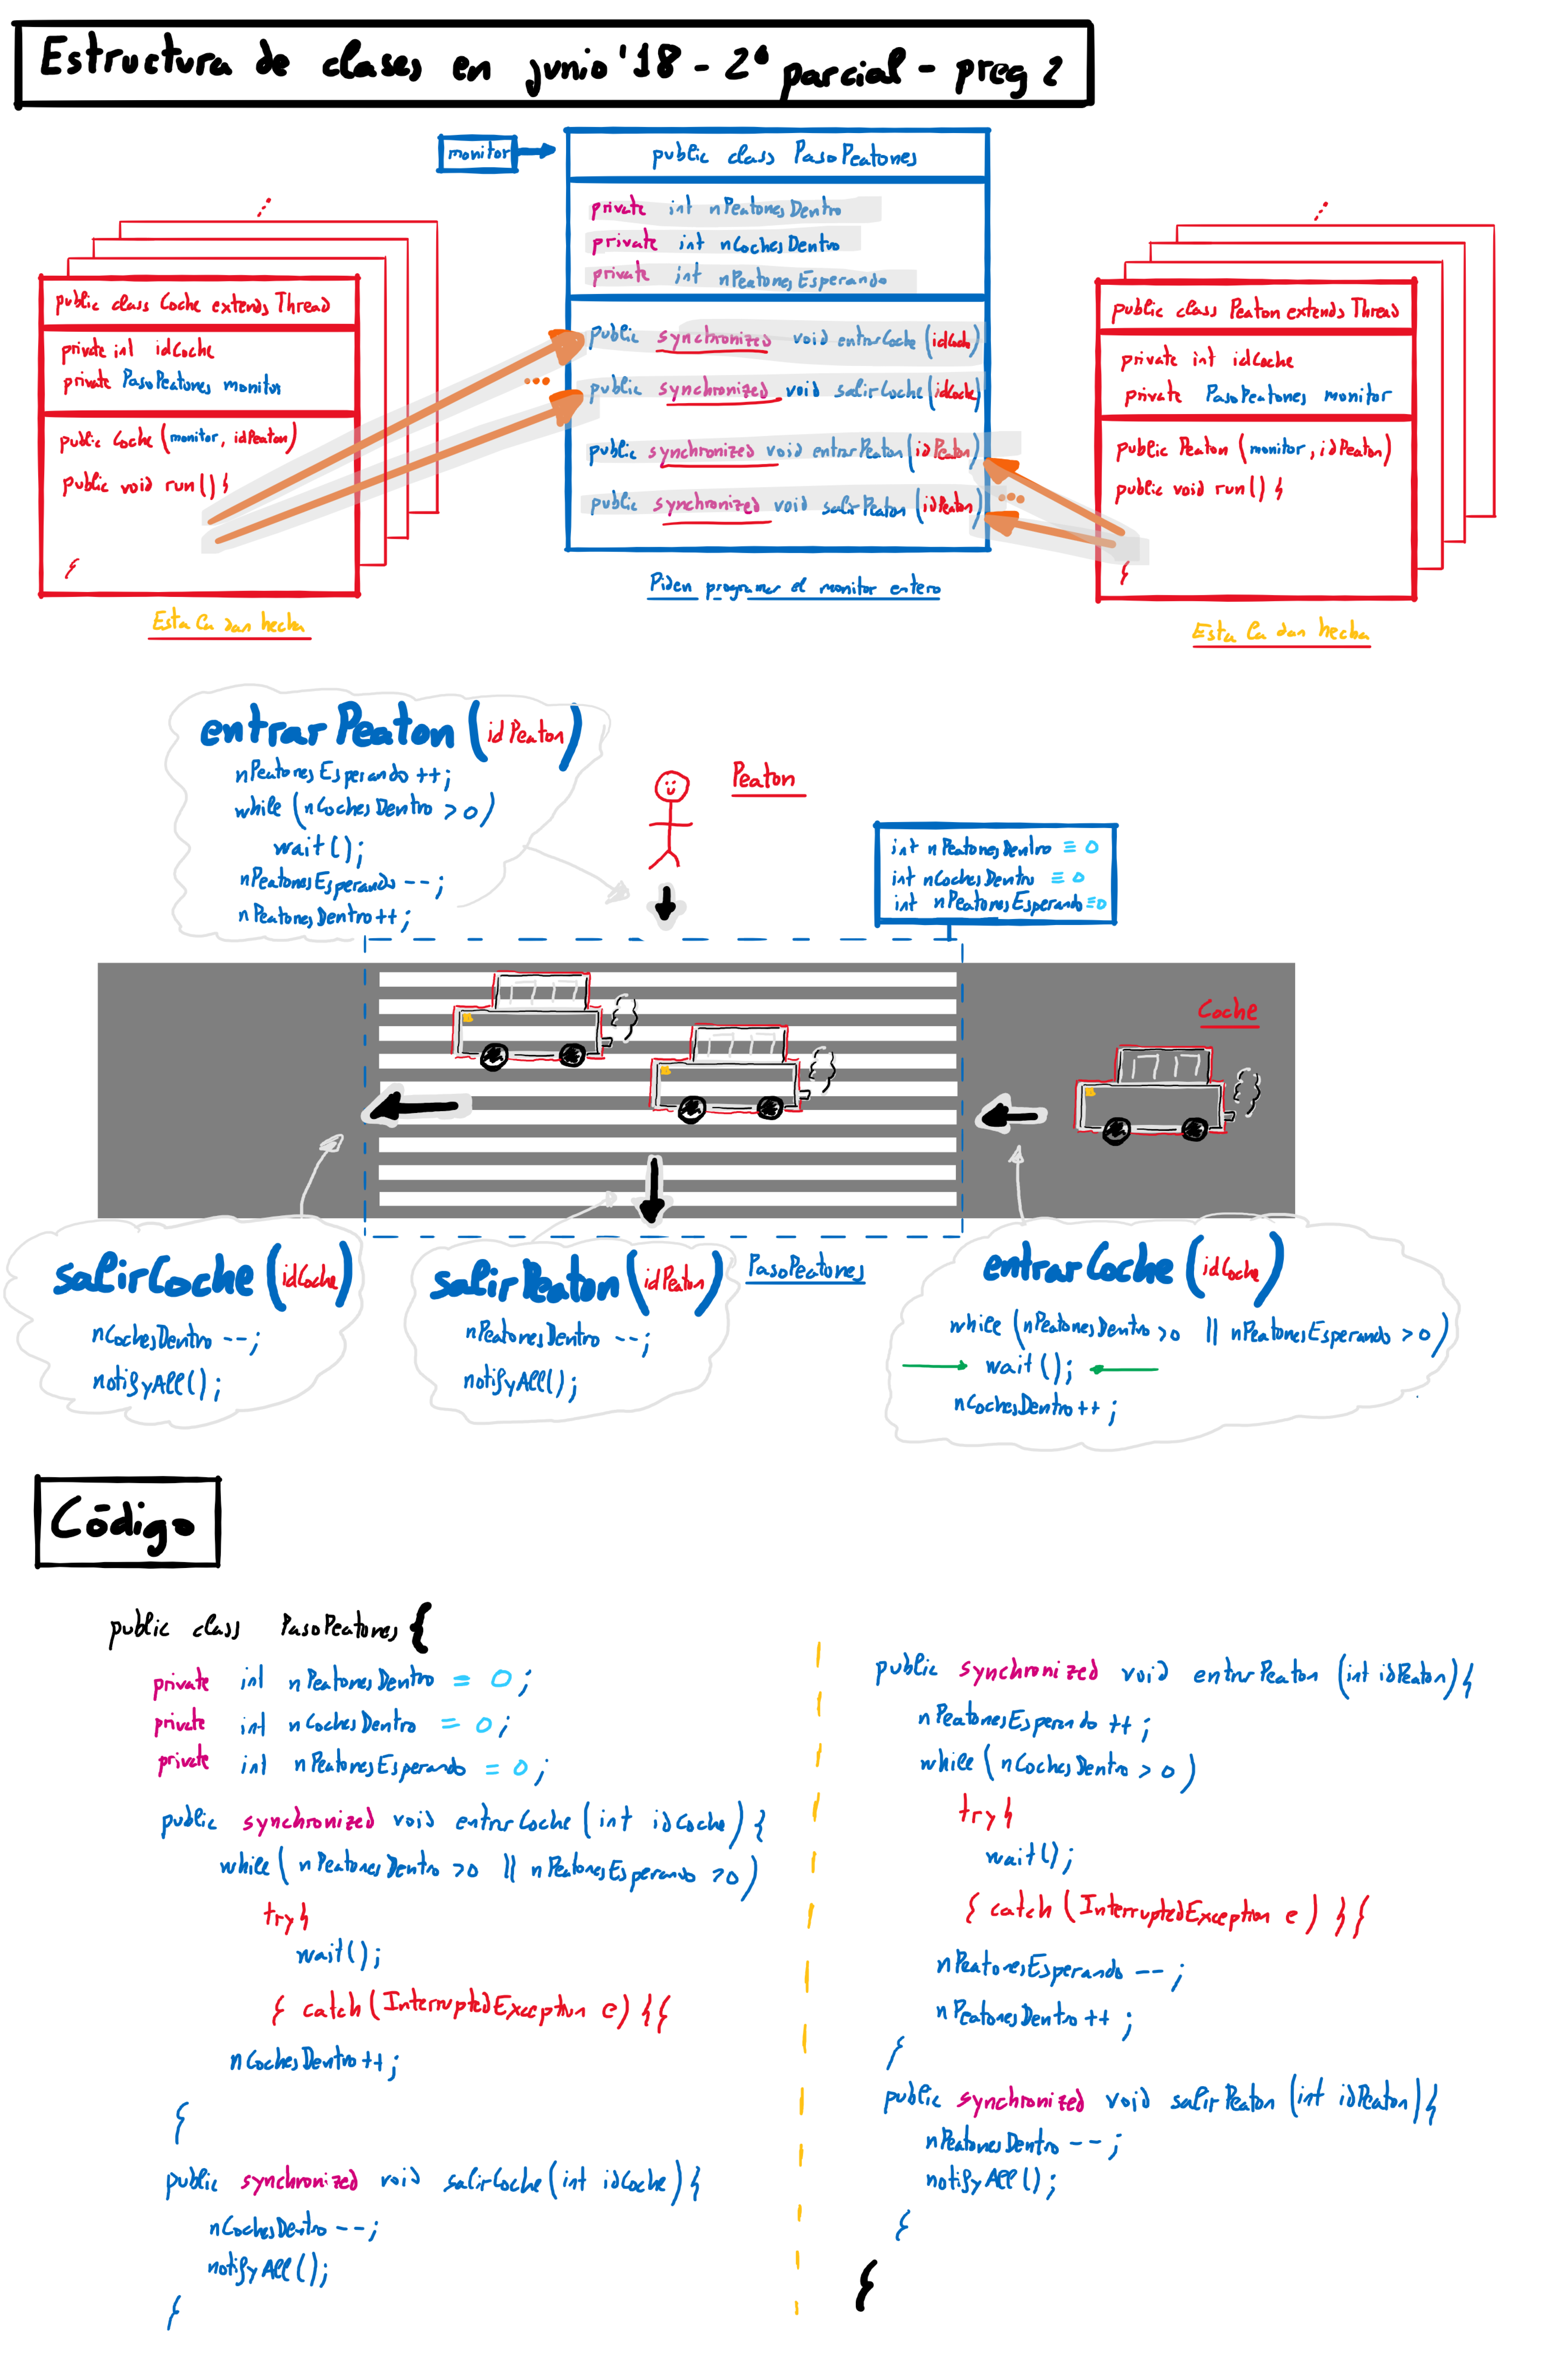 Estructura de clases en junio '18 - 2º parcial - preg 2
monitor
public class PasoPeatones
private int nPeatonesDentro
private int nCochesDentro
private int nPeatonesEsperando
public synchronized void entrarCoche (idCoche)
public synchronized void salirCoche (idCoche)
public synchronized void entrarPeaton (idPeaton)
public synchronized void salirPeaton (idPeaton)
Piden programar el monitor entero
public class Coche extends Thread
private int idCoche
private PasoPeatones monitor
public Coche (monitor, idPeaton)
public void run() {
}
Esta la dan hecha
...
public class Peaton extends Thread
private int idCoche
private PasoPeatones monitor
public Peaton (monitor, idPeaton)
public void run() {
}
Esta la dan hecha
...
entrarPeaton (idPeaton)
nPeatonesEsperando ++;
while (nCochesDentro > 0)
wait();
nPeatonesEsperando --;
nPeatonesDentro ++;
Peaton
int nPeatonesDentro = 0
int nCochesDentro = 0
int nPeatonesEsperando = 0
Coche
salirCoche (idCoche)
nCochesDentro --;
notifyAll();
salirPeaton (idPeaton)
nPeatonesDentro --;
notifyAll();
PasoPeatones
entrarCoche (idCoche)
while (nPeatonesDentro > 0 || nPeatonesEsperando > 0)
wait();
nCochesDentro ++;
Código
public class PasoPeatones {
private int nPeatonesDentro = 0;
private int nCochesDentro = 0;
private int nPeatonesEsperando = 0;
public synchronized void entrarCoche (int idCoche) {
while ( nPeatonesDentro > 0 || nPeatonesEsperando > 0)
try {
wait();
} catch (InterruptedException e) { }
nCochesDentro ++;
}
public synchronized void salirCoche (int idCoche) {
nCochesDentro --;
notifyAll();
}
public synchronized void entrarPeaton (int idPeaton) {
nPeatonesEsperando ++;
while (nCochesDentro > 0)
try {
wait();
} catch (InterruptedException e) { }
nPeatonesEsperando --;
nPeatonesDentro ++;
}
public synchronized void salirPeaton (int idPeaton) {
nPeatonesDentro --;
notifyAll();
}
}